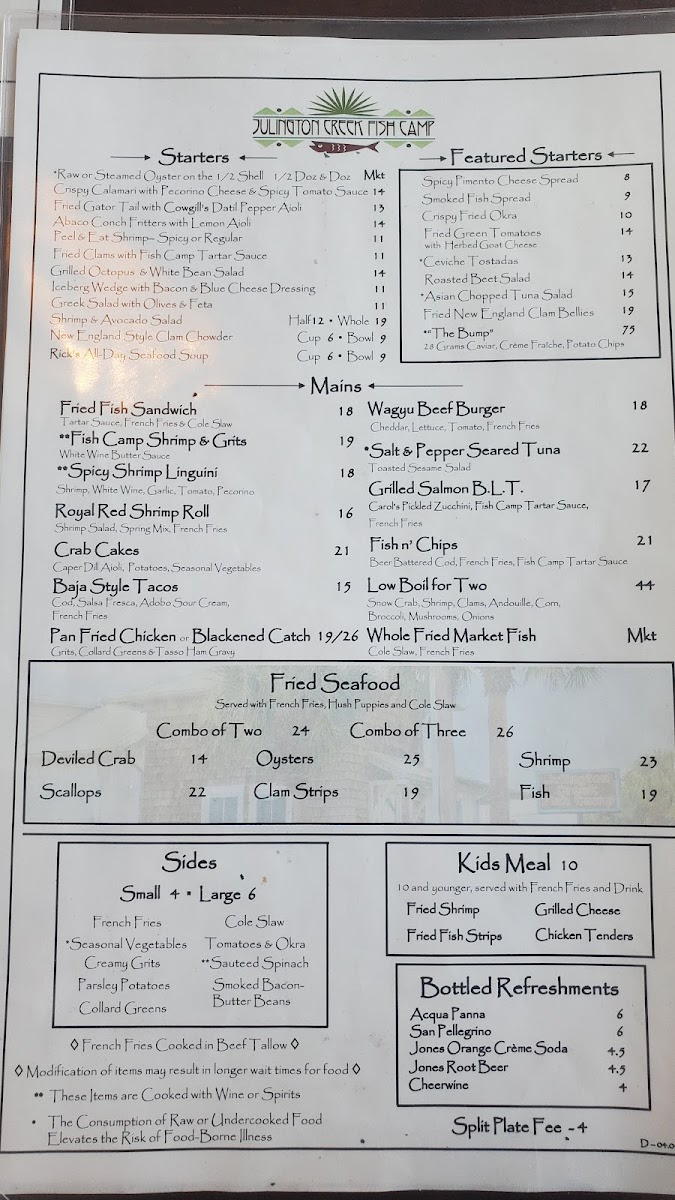 JULINGTON CREEK FISH CAMP
333
Starters
*Raw or Steamed Oyster on the 1/2 Shell 1/2 Doz & Doz Mkt
Crispy Calamari with Pecorino Cheese & Spicy Tomato Sauce 14
Fried Gator Tail with Cowgill's Datil Pepper Aioli 13
Abaco Conch Fritters with Lemon Aioli 14
Peel & Eat Shrimp- Spicy or Regular 11
Fried Clams with Fish Camp Tartar Sauce 11
Grilled Octopus & White Bean Salad 14
Iceberg Wedge with Bacon & Blue Cheese Dressing 11
Greek Salad with Olives & Feta 11
Shrimp & Avocado Salad Half 12 • Whole 19
New England Style Clam Chowder Cup 6 • Bowl 9
Rick's All-Day Seafood Soup Cup 6 • Bowl 9
Featured Starters
Spicy Pimento Cheese Spread 8
Smoked Fish Spread 9
Crispy Fried Okra 10
Fried Green Tomatoes 14
with Herbed Goat Cheese
*Ceviche Tostadas 13
Roasted Beet Salad 14
*Asian Chopped Tuna Salad 15
Fried New England Clam Bellies 19
*"The Bump" 75
28 Grams Caviar, Crème Fraîche, Potato Chips
Mains
Fried Fish Sandwich 18
Tartar Sauce, French Fries & Cole Slaw
**Fish Camp Shrimp & Grits 19
White Wine Butter Sauce
**Spicy Shrimp Linguini 18
Shrimp, White Wine, Garlic, Tomato, Pecorino
Royal Red Shrimp Roll 16
Shrimp Salad, Spring Mix, French Fries
Crab Cakes 21
Caper Dill Aioli, Potatoes, Seasonal Vegetables
Baja Style Tacos 15
Cod, Salsa Fresca, Adobo Sour Cream,
French Fries
Pan Fried Chicken or Blackened Catch 19/26
Grits, Collard Greens & Tasso Ham Gravy
Wagyu Beef Burger 18
Cheddar, Lettuce, Tomato, French Fries
*Salt & Pepper Seared Tuna 22
Toasted Sesame Salad
Grilled Salmon B.L.T. 17
Carol's Pickled Zucchini, Fish Camp Tartar Sauce,
French Fries
Fish n' Chips 21
Beer Battered Cod, French Fries, Fish Camp Tartar Sauce
Low Boil for Two 44
Snow Crab, Shrimp, Clams, Andouille, Corn,
Broccoli, Mushrooms, Onions
Whole Fried Market Fish Mkt
Cole Slaw, French Fries
Fried Seafood
Served with French Fries, Hush Puppies and Cole Slaw
Combo of Two 24 Combo of Three 26
Deviled Crab 14 Oysters 25 Shrimp 23
Scallops 22 Clam Strips 19 Fish 19
Sides
Small 4 • Large 6
French Fries Cole Slaw
*Seasonal Vegetables Tomatoes & Okra
Creamy Grits **Sauteed Spinach
Parsley Potatoes Smoked Bacon-
Collard Greens Butter Beans
Kids Meal 10
10 and younger, served with French Fries and Drink
Fried Shrimp Grilled Cheese
Fried Fish Strips Chicken Tenders
Bottled Refreshments
Acqua Panna 6
San Pellegrino 6
Jones Orange Crème Soda 4.5
Jones Root Beer 4.5
Cheerwine 4
◊ French Fries Cooked in Beef Tallow ◊
◊ Modification of items may result in longer wait times for food ◊
** These Items are Cooked with Wine or Spirits
• The Consumption of Raw or Undercooked Food
Elevates the Risk of Food-Borne Illness
Split Plate Fee - 4
D-04.0